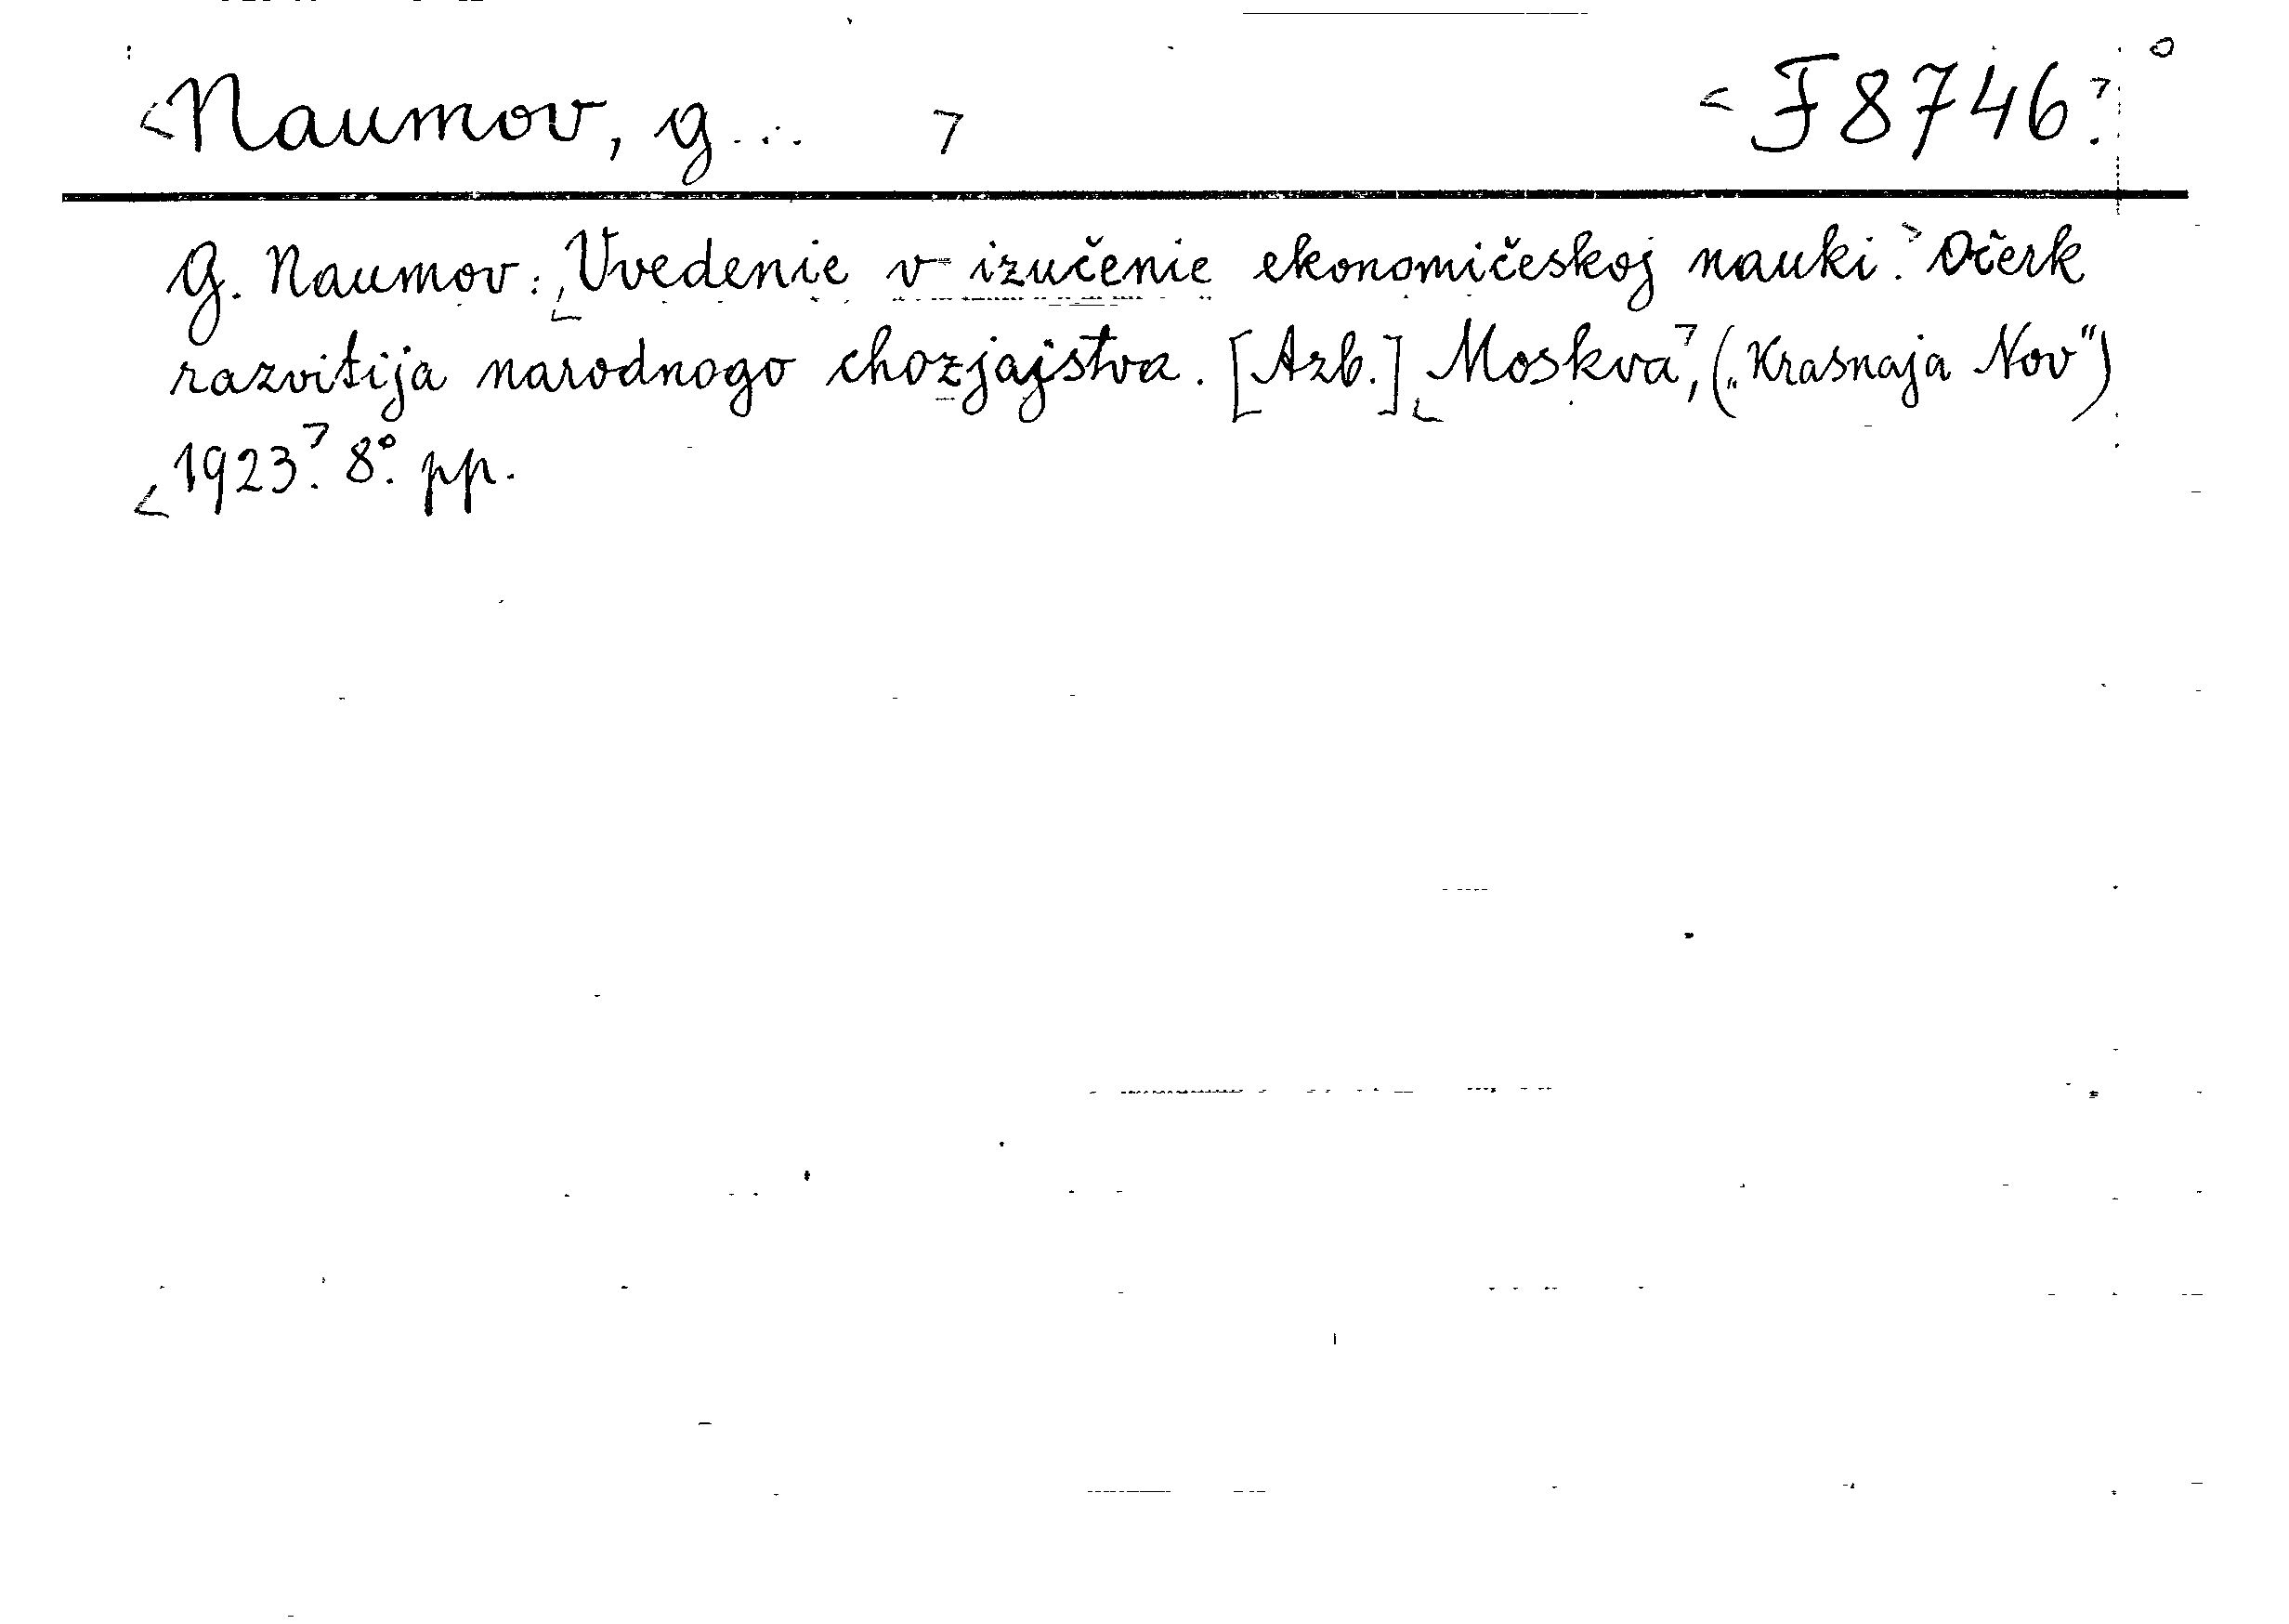 <Naumov, G... > <F8746.>
G. Naumov: <Vvedenie v izučenie ekonomičeskoj nauki.> Očerk
razvitija narodnogo chozjajstva. [Azb.] <Moskva>, („Krasnaja Nov")
<1923>. 8°. pp.